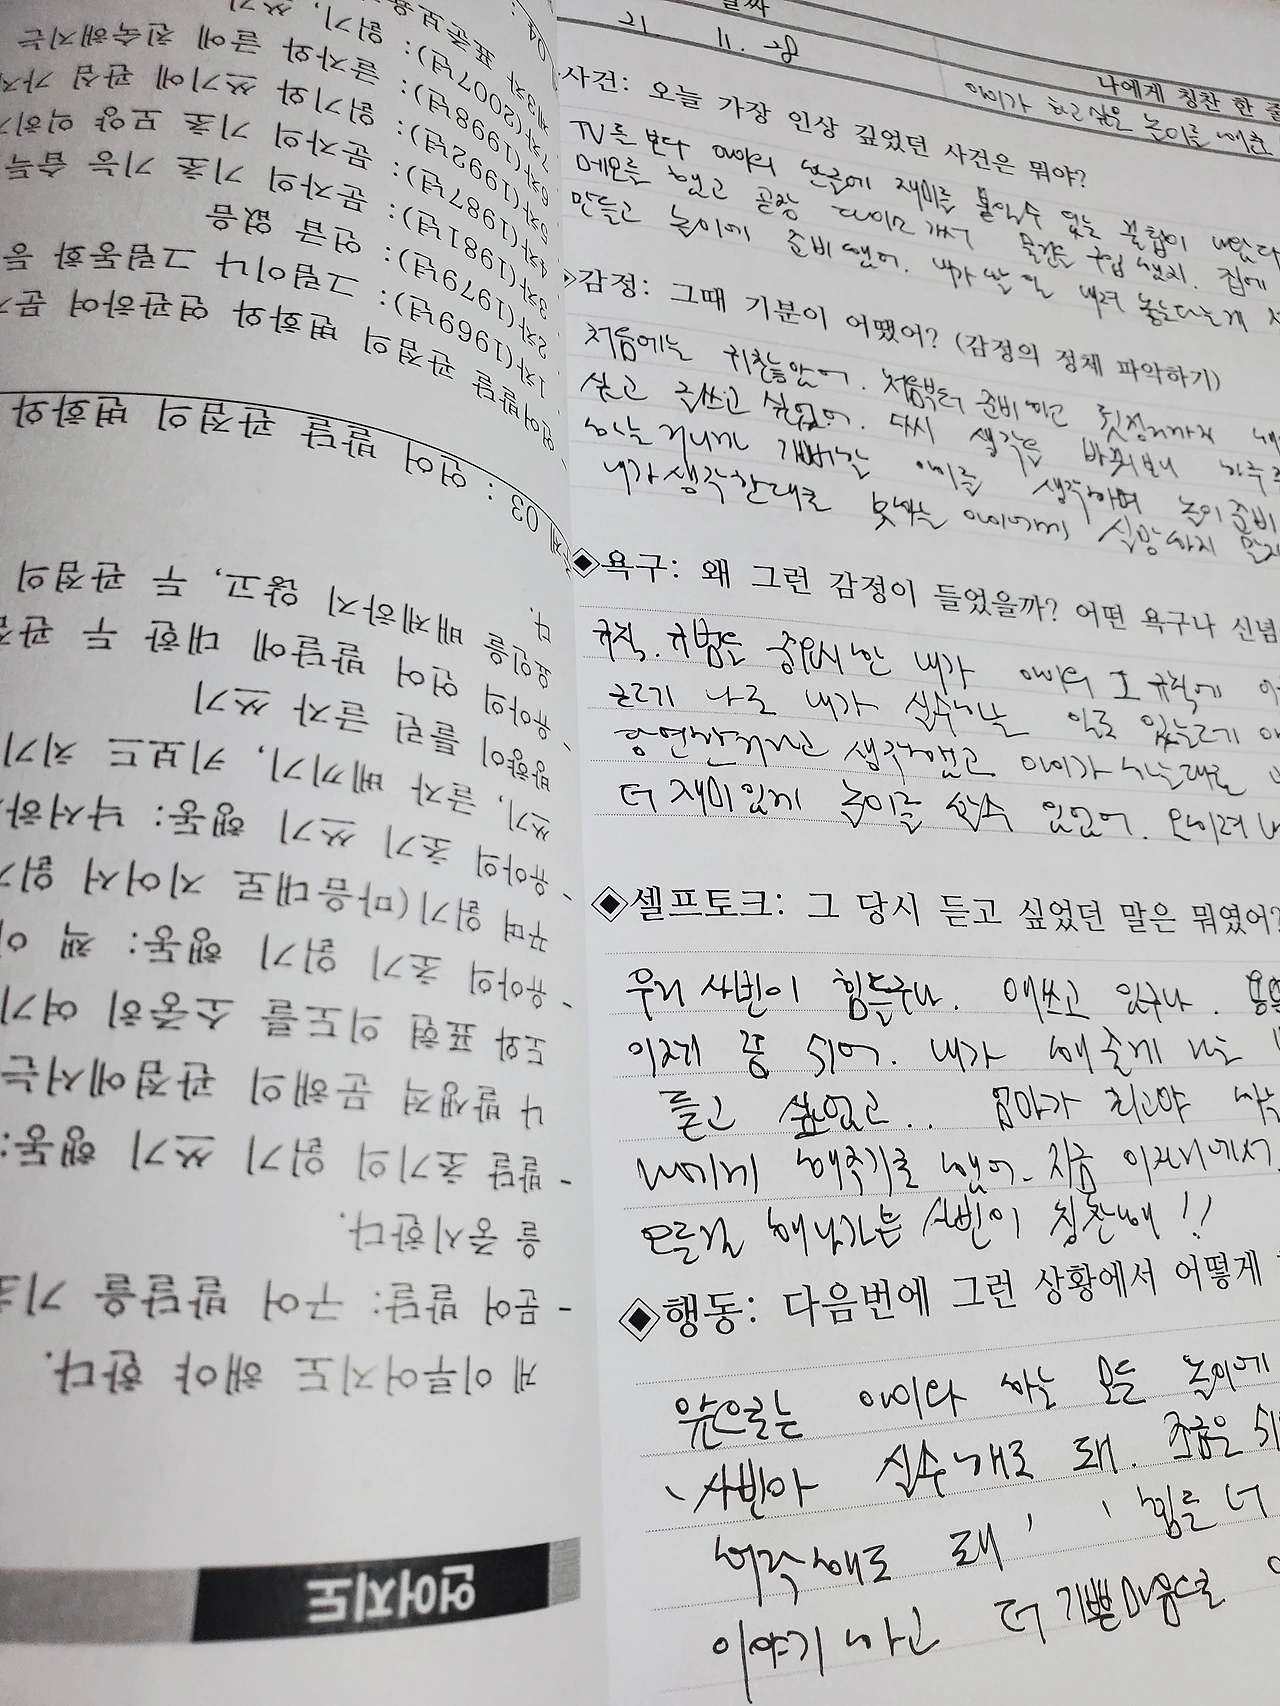 날짜
21. 11. 28
나에게 칭찬 한 줄
아이가 하고싶은 놀이를 해준
사건: 오늘 가장 인상 깊었던 사건은 뭐야?
TV를 보다 아이의 한글에 재미를 붙일수 있는 꿀팁이 나왔다
메모를 했고 곧장 다이소 가서 물건을 구입했지. 집에
만들고 놀이에 준비했어. 내가 할 일 내려 놓는다는게
감정: 그때 기분이 어땠어? (감정의 정체 파악하기)
처음에는 귀찮았어. 처음부터 준비하고 뒷정리까지
싫고 글쓰고 싶었어. 다시 생각을 바꿔보니 하루
하는거니까 개버릴 아이를 생각하며 놀이준비
내가생각한대로 못하는 아이에게 실망하지 말자
◈욕구: 왜 그런 감정이 들었을까? 어떤 욕구나 신념
규칙. 규범을 중요시한 내가 아이의 노 규칙에
모르게 나로 내가 실수하는 일로 있는그게
당연한거라고 생각했고 아이가 하는대로
더 재미있게 놀이를 할수 있었어. 오히려
◈셀프토크: 그 당시 듣고 싶었던 말은 뭐였어?
우리 사빈이 힘들구나. 애쓰고 있구나.
이제 좀 쉬어. 내가 해줄게 라는
듣고 싶었고.. 엄마가 최고야 하는
나에게 해주기로 했어. 지금 이자리에서
모든걸 해나가는 사빈이 칭찬해!!
◈행동: 다음번에 그런 상황에서 어떻게
앞으로는 아이와 하는 모든 놀이에
'사빈아 실수해도 돼. 조금은
허락해도 돼' '힘들 더
이야기하고 더 기쁜마음으로
언어지도
게 이루어지도 해야 한다.
- 문어 발달: 구어 발달을 기초
을 중시한다.
- 발달 초기의 읽기 쓰기 행동:
나 발생적 문해의 관점에서는
도와 표현 의도를 소중히 여기
- 유아의 초기 읽기 행동: 책 이
꾸며 읽기(마음대로 지어서 읽기
- 유아의 초기 쓰기 행동: 낙서하
쓰기, 글자 베끼기, 키보드 치기
방향이 틀린 글자 쓰기
- 유아의 언어 발달에 대한 두 관점
요인을 배제하지 않고, 두 관점의
다.
주제 03 : 언어 발달 관점의 변화와
- 언어발달 관점의 변화와 연관하여 문
1차(1969년): 그림이나 그림동화 등
2차(1979년): 언급 없음
3차(1981년): 문자의 기초 기능 습득
4차(1987년): 문자의 기초 모양 익히기
5차(1992년): 읽기와 쓰기에 관심 가지
6차(1998년): 글자와 글에 친숙해지는
7차(2007년): 읽기, 쓰기
제3차 표준보육
04 :